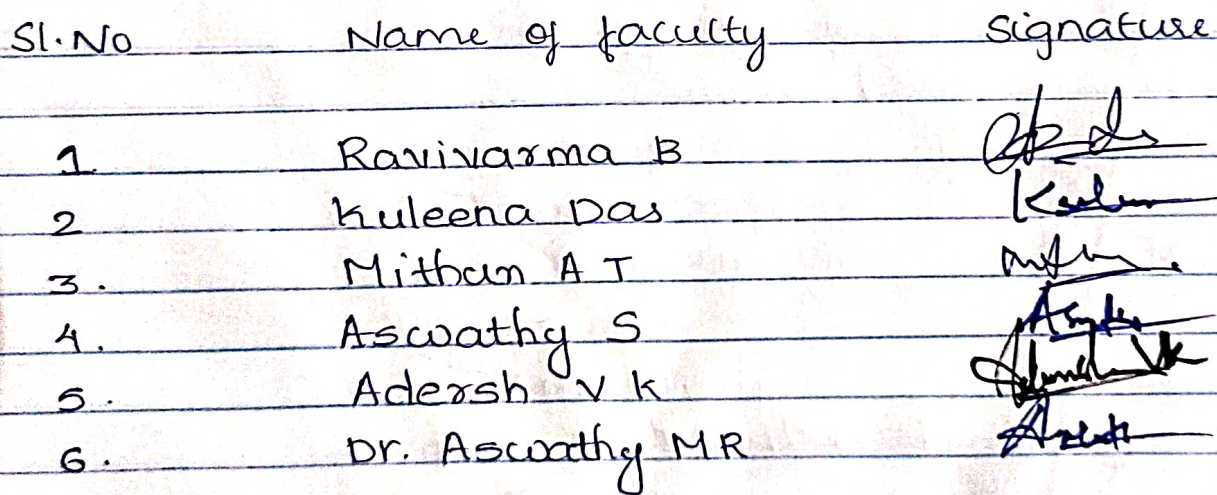 Sl. No Name of faculty Signature
1 Ravivarma B
2 Kuleena Das
3. Mithun A T
4. Aswathy S
5. Adersh V K
6. Dr. Aswathy MR